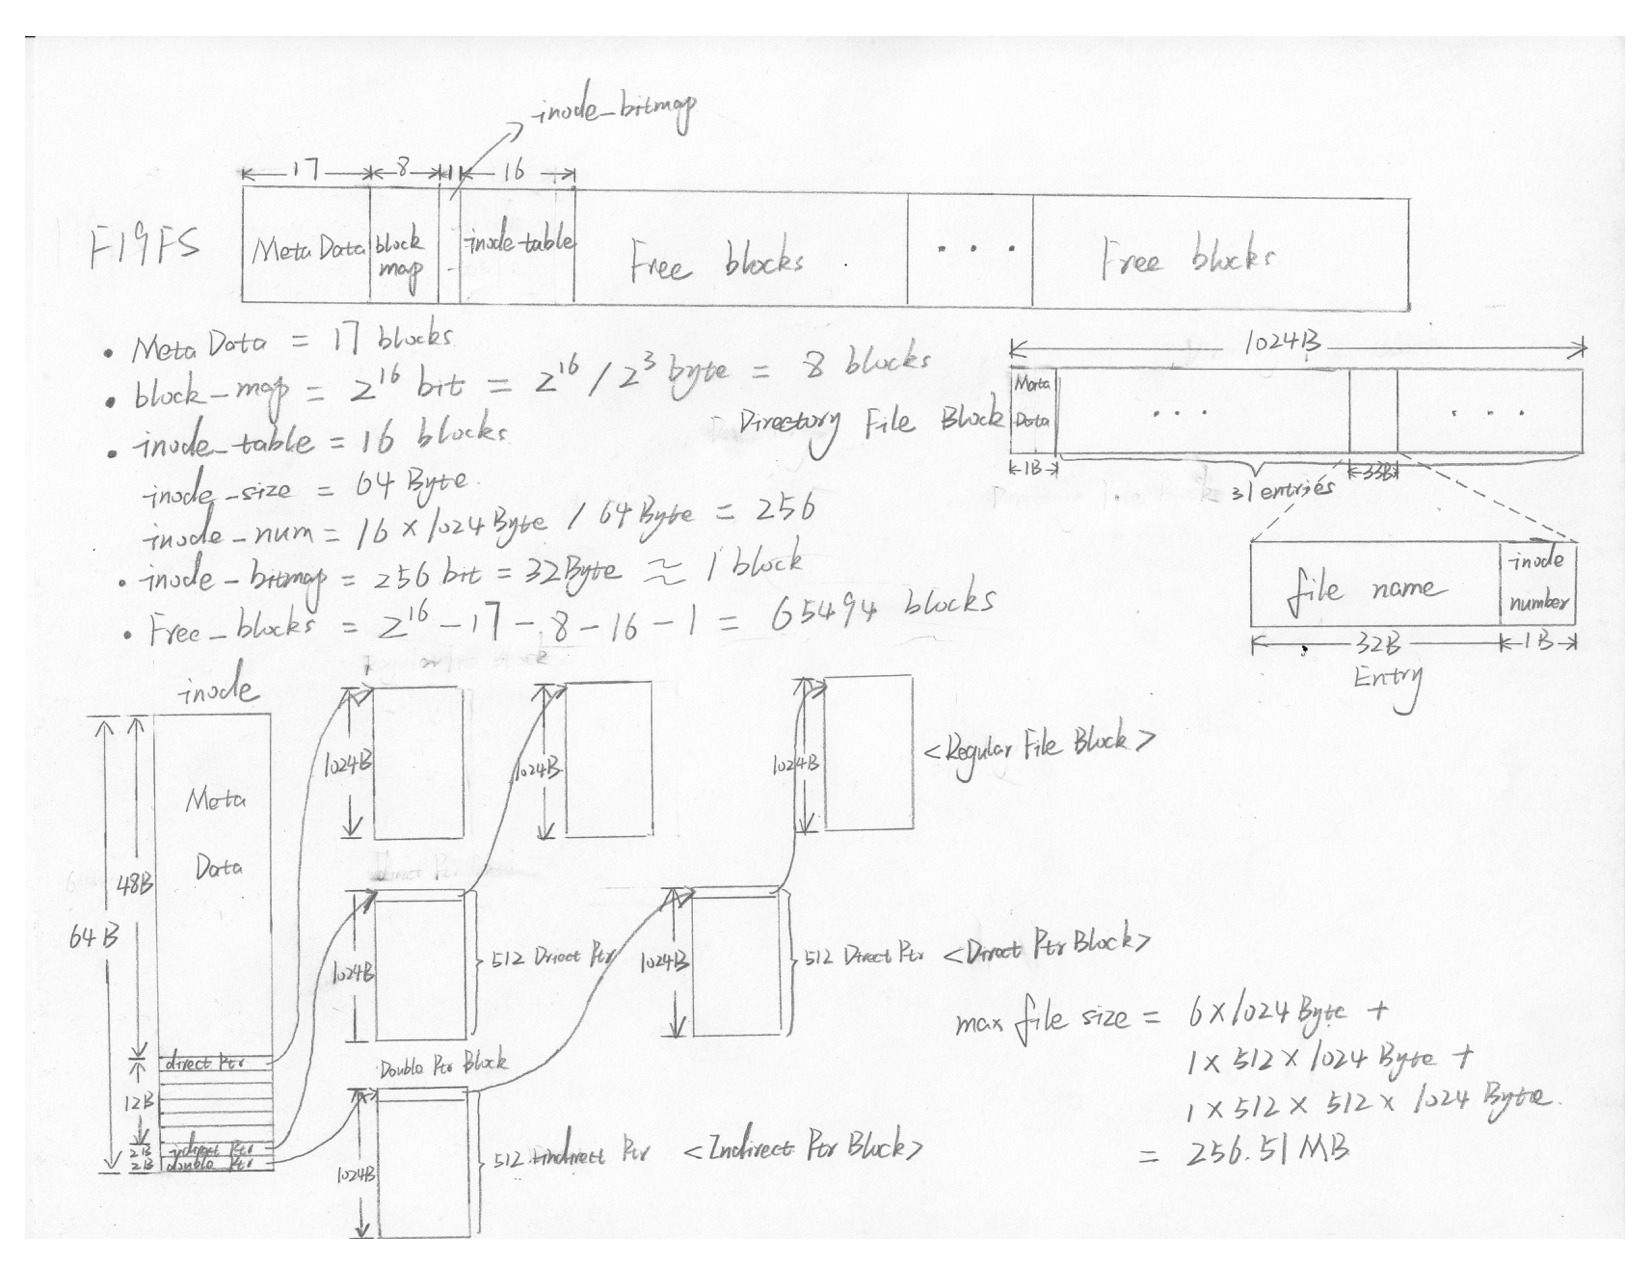 inode_bitmap
17 8 1 16
F19FS
Meta Data
block map
inode table
Free blocks
. . .
Free blocks
• Meta Data = 17 blocks
• block_map = 2^16 bit = 2^16 / 2^3 byte = 8 blocks
• inode_table = 16 blocks
inode_size = 64 Byte.
inode_num = 16 × 1024 Byte / 64 Byte = 256
• inode_bitmap = 256 bit = 32 Byte ≈ 1 block
• Free_blocks = 2^16 - 17 - 8 - 16 - 1 = 65494 blocks
1024B
Directory File Block
Mata Data
. . .
. . .
1B
31 entries
33B
file name
inode number
32B
1B
Entry
inode
Meta
Data
48B
64B
12B
2B
2B
direct Ptr
indirect Ptr
double Ptr
1024B
1024B
1024B
<Regular File Block>
1024B
512 Driect Ptr
1024B
512 Direct Ptr
<Direct Ptr Block>
Double Ptr Block
1024B
512 indirect Ptr
<Indirect Ptr Block>
max file size = 6 × 1024 Byte +
1 × 512 × 1024 Byte +
1 × 512 × 512 × 1024 Byte.
= 256.51 MB